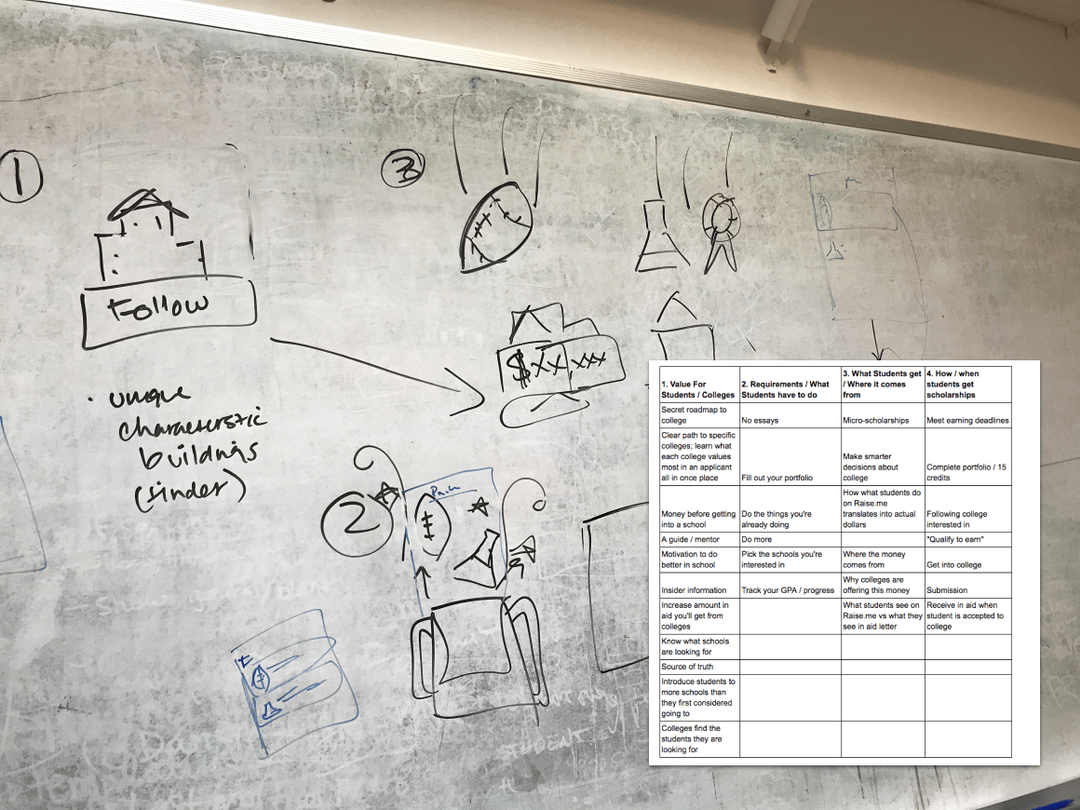 1
Follow
unique
characteristic
buildings
(tinder)
3
$XX,XXX
2
1. Value For Students / Colleges
2. Requirements / What Students have to do
3. What Students get / Where it comes from
4. How / when students get scholarships
Secret roadmap to college
No essays
Micro-scholarships
Meet earning deadlines
Clear path to specific colleges; learn what each college values most in an applicant all in once place
Fill out your portfolio
Make smarter decisions about college
Complete portfolio / 15 credits
Money before getting into a school
Do the things you're already doing
How what students do on Raise.me translates into actual dollars
Following college interested in
A guide / mentor
Do more
"Qualify to earn"
Motivation to do better in school
Pick the schools you're interested in
Where the money comes from
Get into college
Insider information
Track your GPA / progress
Why colleges are offering this money
Submission
Increase amount in aid you'll get from colleges
What students see on Raise.me vs what they see in aid letter
Receive in aid when student is accepted to college
Know what schools are looking for
Source of truth
Introduce students to more schools than they first considered going to
Colleges find the students they are looking for